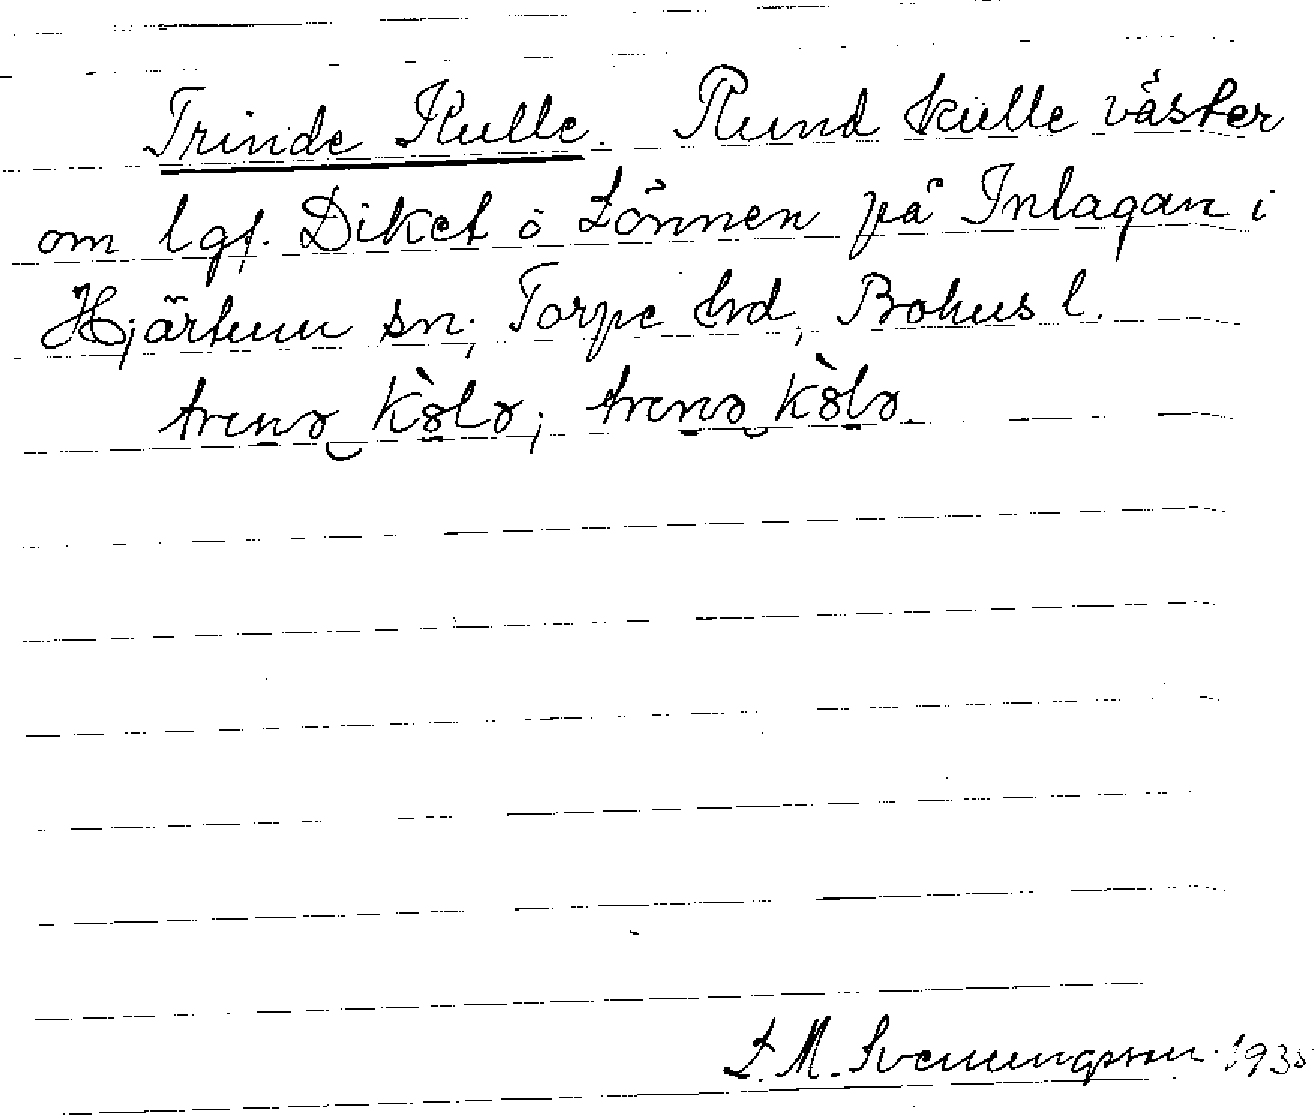 Trinde Kulle. Rund kulle väster
om lgf. Diket ö Lönnen på Inlagan i
Hjärtum sn; Torpe hd, Bohus l.
L. M. Svenungsson 1935